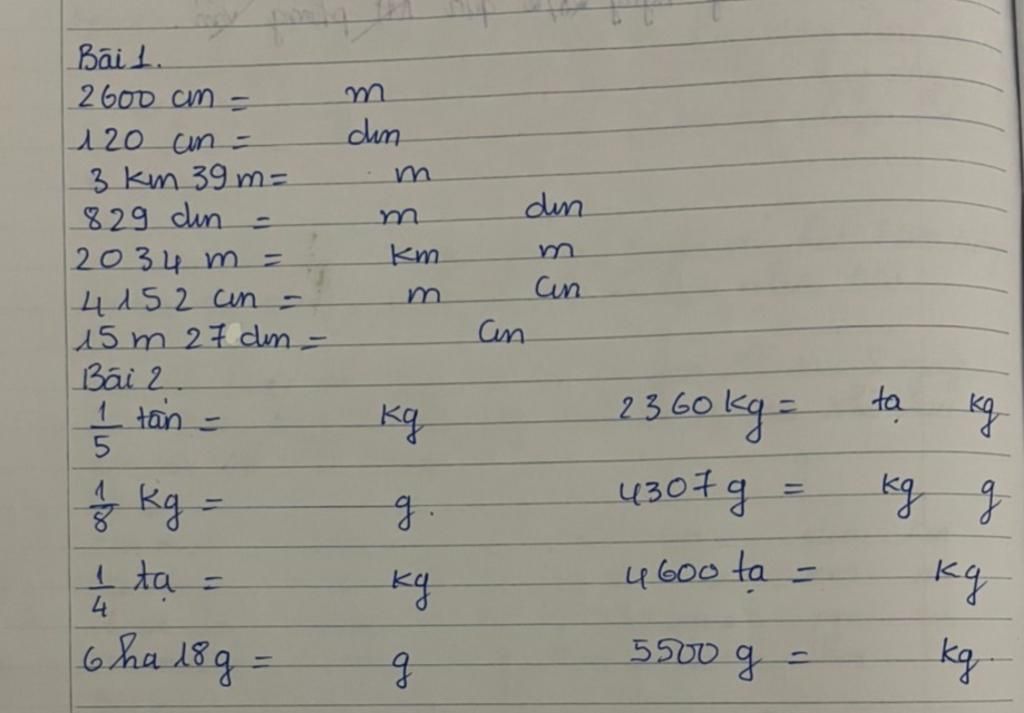 Bài 1.
2600 cm = m
120 cm = dm
3 km 39 m = m
829 dm = m dm
2034 m = km m
4152 cm = m cm
15 m 27 dm = cm
Bài 2.
1/5 tấn = kg 2360 kg = tạ kg
1/8 kg = g. 4307 g = kg g
1/4 tạ = kg 4600 tạ = kg
6 ha 18 g = g 5500 g = kg.